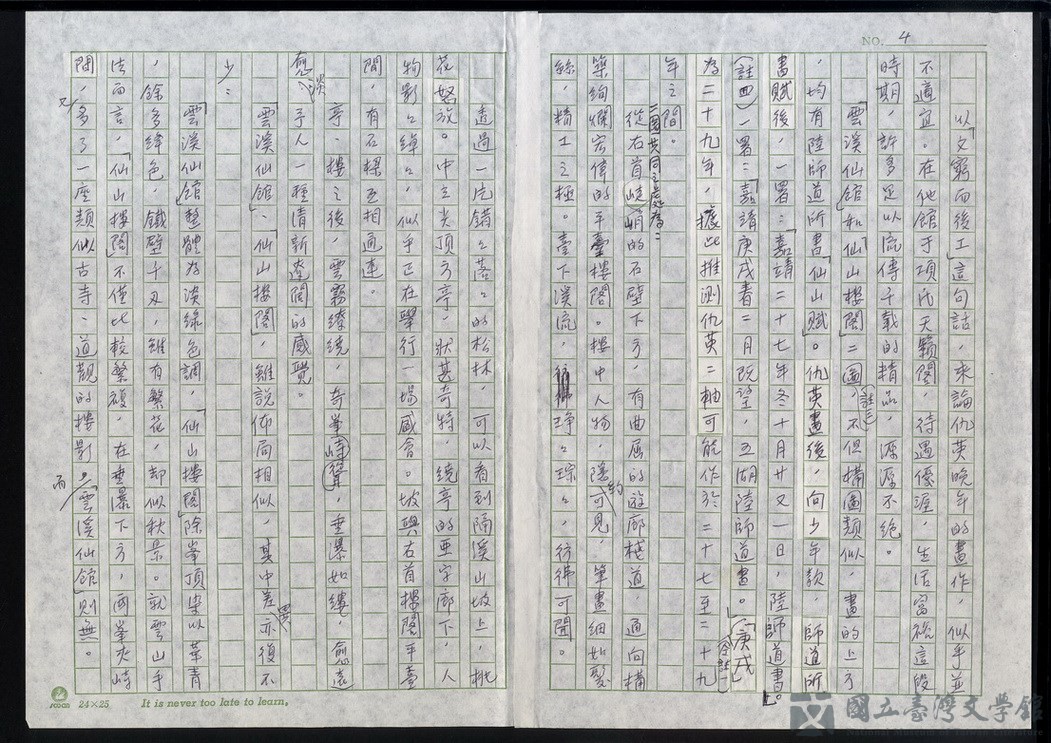 NO. 4
以「文窮而後工」這句話,來論仇英晚年的畫作,似乎並
不適宜。在他館于項氏天籟閣,待遇優渥,生活富裕這段
時期,許多足以流傳千載的精品,源源不絕。
「雲溪仙館」如「仙山樓閣」二圖,(註三)不但構圖類似,畫的上方
,均有陸師道所書「仙山賦」。仇英畫後,向少年款,師道所
書賦後,一署:「嘉靖二十七年冬十月廿又一日,陸師道書。」
(註四)一署:「嘉靖庚戌春二月既望,五湖陸師道書。」(庚戌
為二十九年,據此推測仇英二軸可能作於二十七至二十九
年之間。
二圖共同之處為:
從右首峻峭的石壁下方,有曲屈的遊廊棧道,通向構
築絢爛宏偉的平臺樓閣。樓中人物,隱約可見,筆畫細如髮
絲,精工之極。臺下溪流,琤琤琮琮,彷彿可聞。
透過一片錯錯落落的松林,可以看到隔溪山坡上,桃
花怒放。中立尖頂方亭,狀甚奇特,繞亭的亜字廊下,人
物影影綽綽,似乎正在舉行一場盛會。坡與右首樓閣平臺
間,有石樑互相通連。
亭、樓之後,雲霧繚繞,奇峯峙聳,垂瀑如縷,愈遠
愈淡,予人一種清新遼闊的感覺。
「雲溪仙館」、「仙山樓閣」,雖說佈局相似,其中差異亦復不
少:
「雲溪仙館」整體為淡綠色調,「仙山樓閣」除峯頂染以華青
,餘多絳色,鐵壁千刃,雖有繁花,却似秋景。就雲山手
法而言,「仙山樓閣」不僅比較繁複,在垂瀑下方,兩峯夾峙
間,又多了一座類似古寺、道觀的樓影。而「雲溪仙館」則無。
24×25 It is never too late to learn.
國立臺灣文學館
National Museum of Taiwan Literature